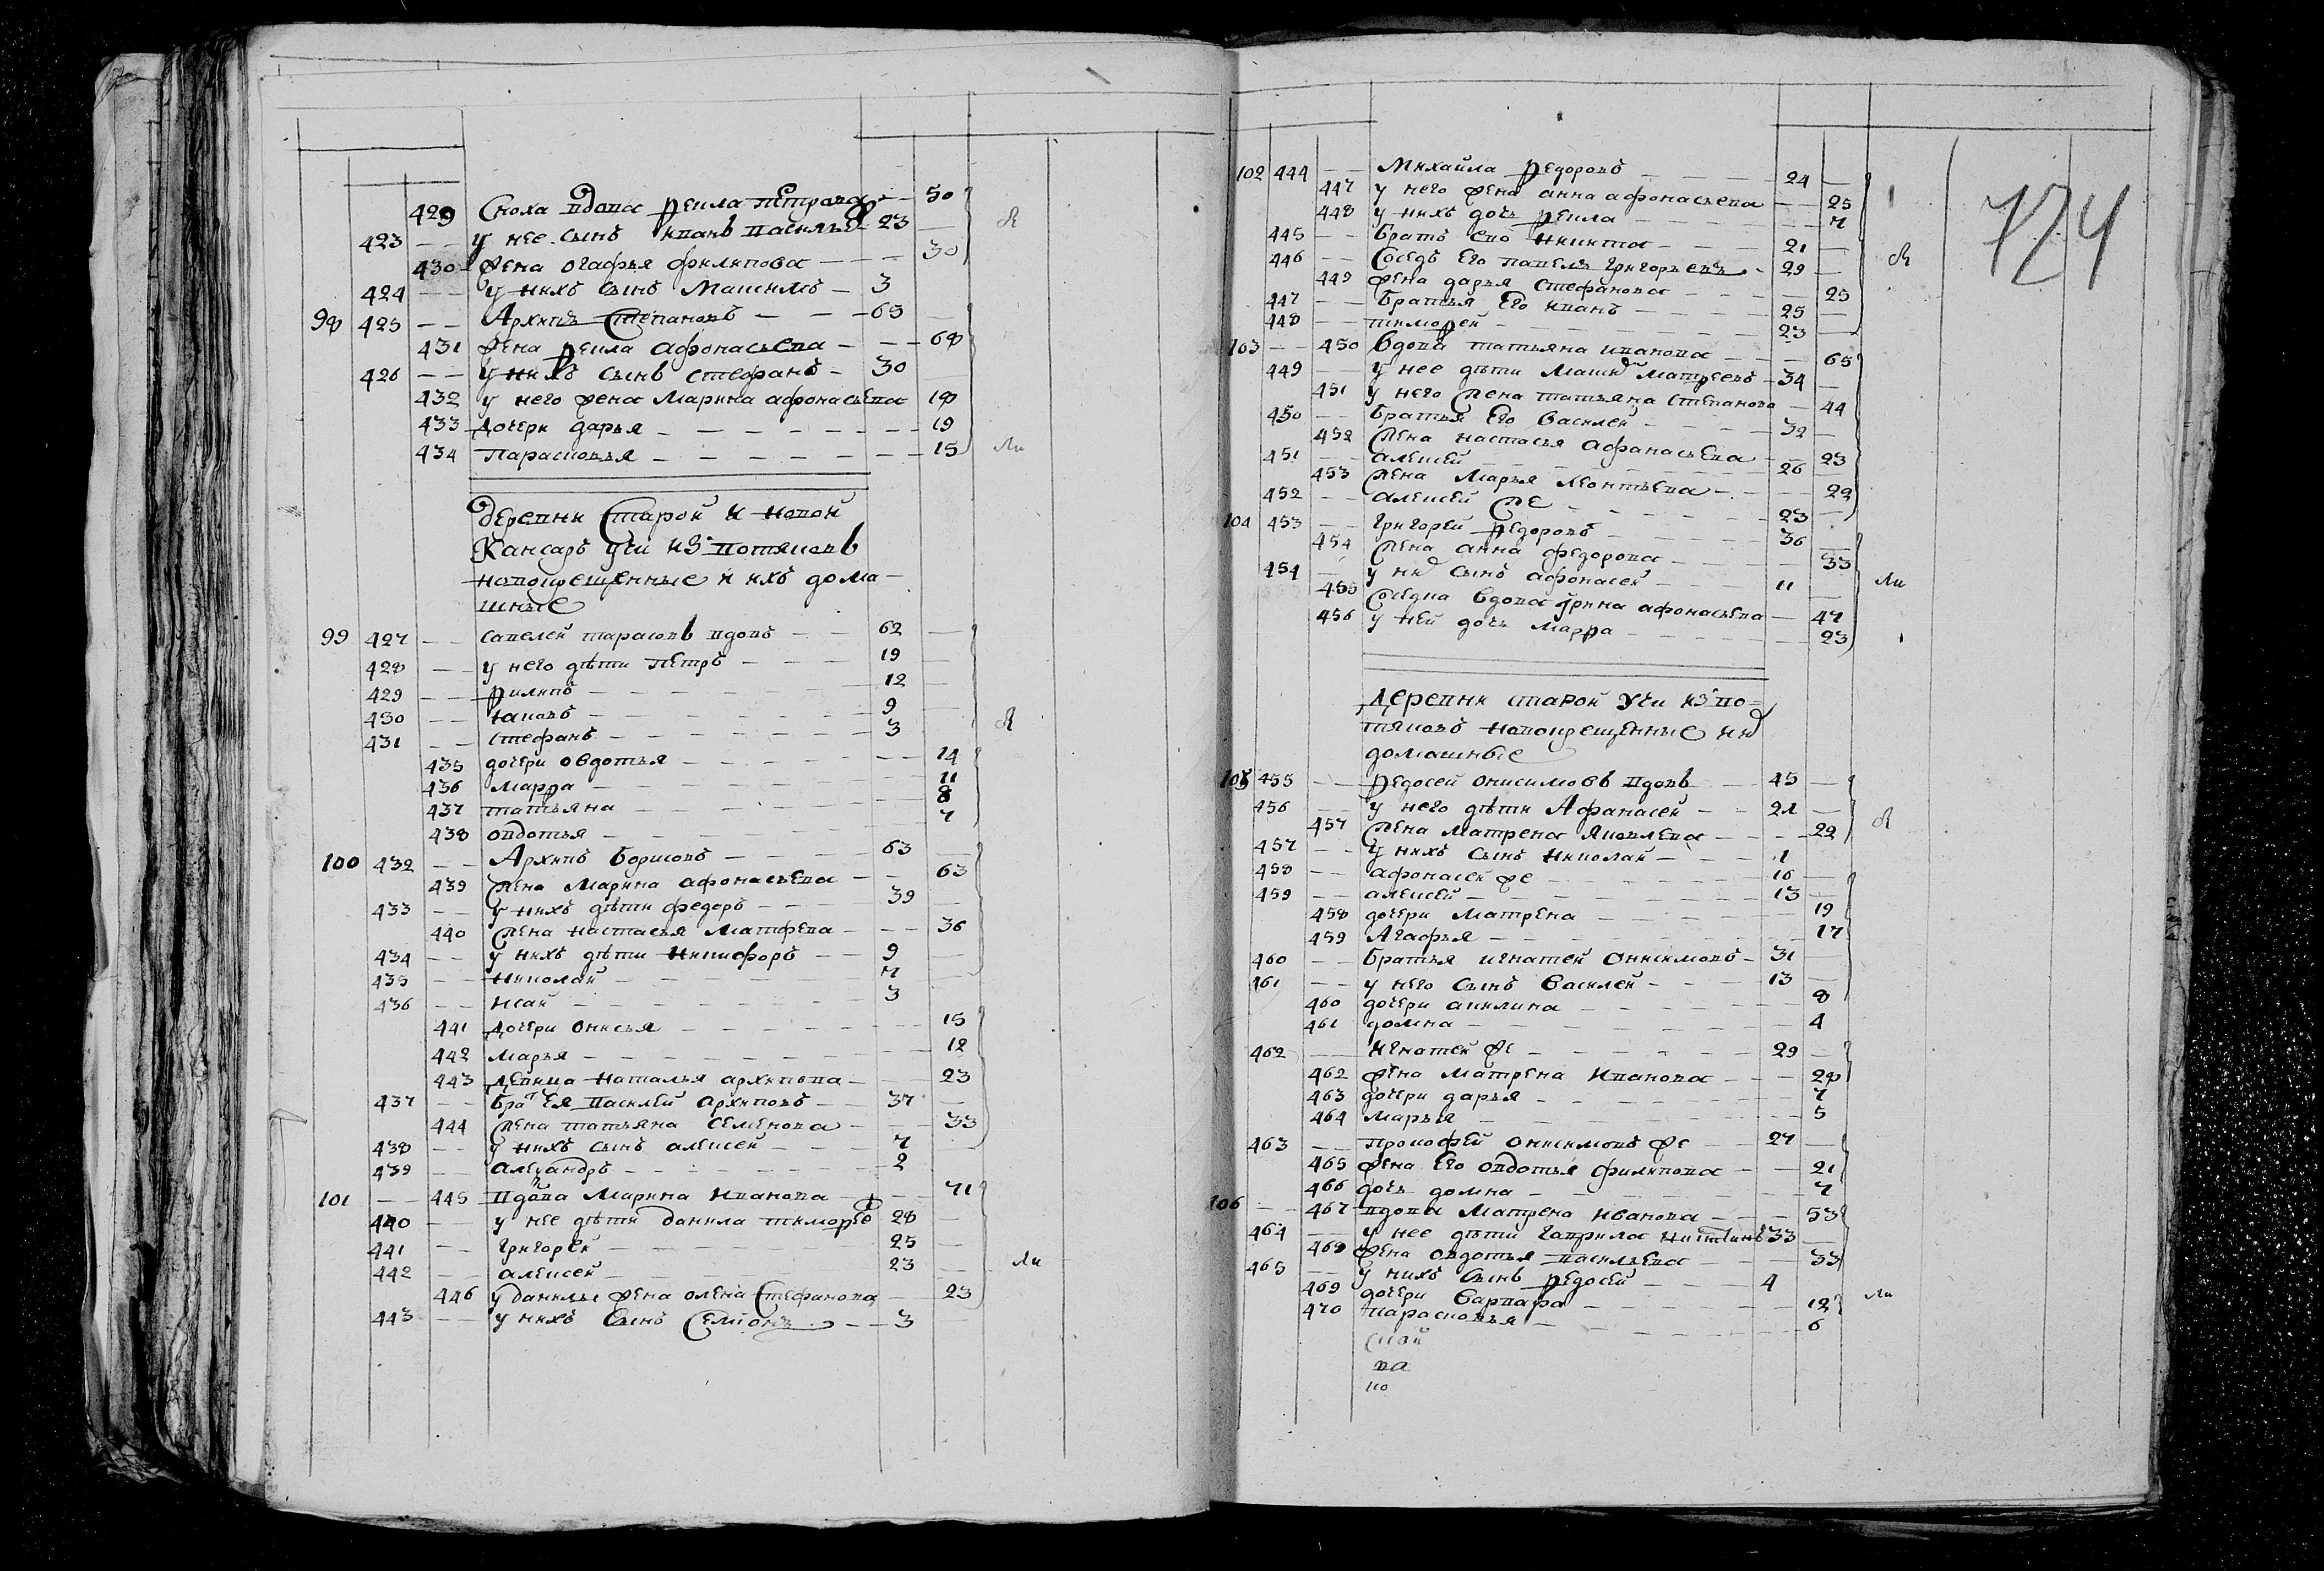 429 Сноха вдова Фекла Петрова — 50
423 — — у нее сынъ Иванъ Васильевъ 23
430 жена Огафья Филипова — — — 30
424 — — у нихъ сынъ Максимъ — 3
98 425 — — Архипъ Степановъ — — 65
431 жена Фекла Афонасьева — — — 68
426 — — у нихъ сынъ Стефанъ — 30
432 у него жена Марина Афонасьева 18
433 дочери Дарья — — — — — 19
434 Парасковья — — — — — 15
Деревни Старой и новой
Кансаръ учи изъ вотяковъ
новокрещенные и ихъ дома
шные
99 427 — — Савелей Тарасовъ вдовъ — — 62
428 — — у него дѣти Петръ — — — 19
429 — — Филипъ — — — — — 12
430 — — Яковъ — — — — — 9
431 — — Стефанъ — — — — — 3
435 дочери Овдотья — — — — 14
436 Марфа — — — — — 11
437 Татьяна — — — — — 8
438 Овдотья — — — — — 7
100 432 — — Архипъ Борисовъ — — — 63
439 жена Марина Афонасьева — — 63
433 — — у нихъ дѣти Федоръ — — — 39
440 жена Настасья Матфева — — — 36
434 — — у нихъ дѣти Никифоръ — — 9
435 — — Николай — — — — 7
436 — — Исай — — — — — 3
441 дочери Онисья — — — — — 15
442 Марья — — — — — 12
443 девица Наталья Архипова — — 23
437 — — Братъ ея Василей Архиповъ — 37
444 жена Татьяна Семенова — — 33
438 — — у нихъ сынъ Алексей — — — 7
439 — — Александръ — — — — 2
101 — — 445 Вдова Марина Иванова — — — 71
440 — — у нее дѣти Данила Тимофеевъ 28
441 — — Григорей — — — — 25
442 — — Алексей — — — — 23
446 у Данилы жена Олена Стефанова — 23
443 — — у нихъ сынъ Семіонъ — — 3
724
102 444 — — Михайла Федоровъ — — — 24
447 у него жена Анна Афонасьева — — 25
448 у нихъ дочь Фекла — — — — 7
445 — — братъ ево Никита — — — 21
446 — — соседъ его Павелъ Григорьевъ — 29
449 жена Дарья Стефанова — — — 25
447 — — братья его Иванъ — — — 25
448 — — Тимофей — — — — 23
103 — — 450 Вдова Татьяна Иванова — — — 65
449 — — у нее дѣти Максимъ Матфеевъ — 34
451 у него жена Татьяна Степанова — 44
450 — — братья его Василей — — — 32
452 жена Настасья Афанасьева — — 23
451 — — Алексей — — — — 26
453 жена Марья Леонтьева — — — 22
452 — — Алексей же — — — — 23
104 453 — — Григорей Федоровъ — — — 36
454 жена Анна Федорова — — — 35
454 — у нихъ сынъ Афонасей — — 11
455 соседка вдова Ирина Афонасьева — 47
456 у ней дочь Марфа — — — — 23
Деревни старой Учи изъ во=
тяковъ новокрещенные ихъ
домашные
105 455 — — Федосей Онисимовъ вдовъ — 45
456 — — у него дѣти Афанасей — — 21
457 жена Матрена Яковлева — — — 22
457 — — у нихъ сынъ Николай — — — 1
458 — — Афонасей же — — — — 16
459 — — Алексей — — — — 13
458 дочери Матрена — — — — 19
459 Агафья — — — — — 17
460 — — Братья Игнатей Онисимовъ — 31
461 — — у него сынъ Василей — — — 13
460 дочери Акилина — — — — 8
461 Домна — — — — — 4
462 — — Игнатей же — — — — 29
462 жена Матрена Иванова — — — 28
463 дочери Дарья — — — — 7
464 Марья — — — — — 5
463 — — Прокофей Онисимовъ же — 27
465 жена его Овдотья Филипова — — 21
466 дочь Домна — — — — 7
106 — — 467 Вдова Матрена Иванова — — — 53
464 — — у нее дѣти Гаврила Никитинъ 33
468 жена Овдотья Васильева — — — 33
465 — — у нихъ сынъ Федосей — — — 4
469 дочери Варвара — — — — 12
470 Парасковья — — — — 6
ва
но